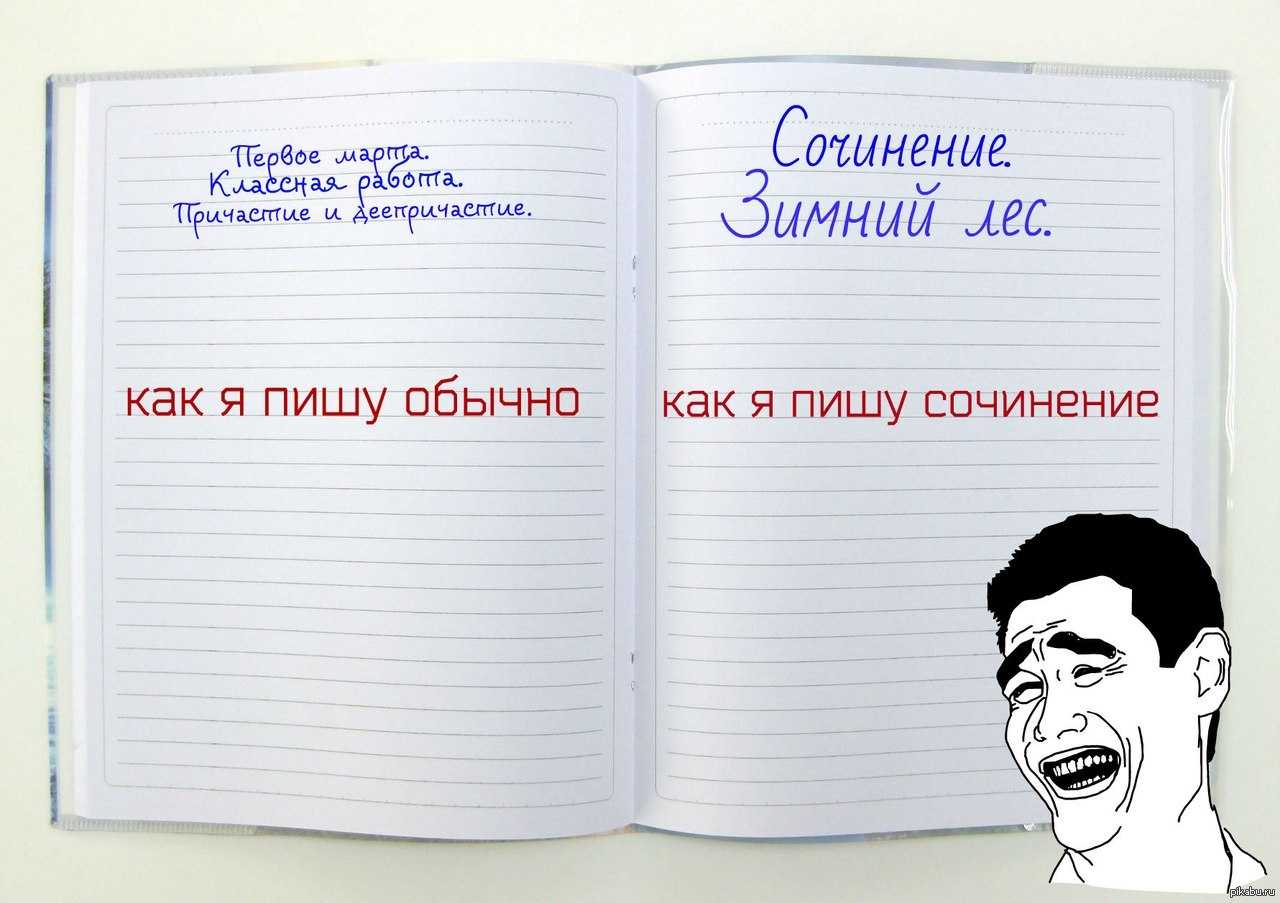 Первое марта.
Классная работа.
Причастие и деепричастие.
как я пишу обычно
Сочинение.
Зимний лес.
как я пишу сочинение
pikabu.ru